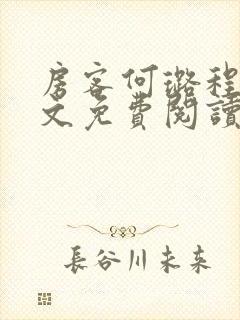 房客何璐程
文免費閱讀
長谷川未来